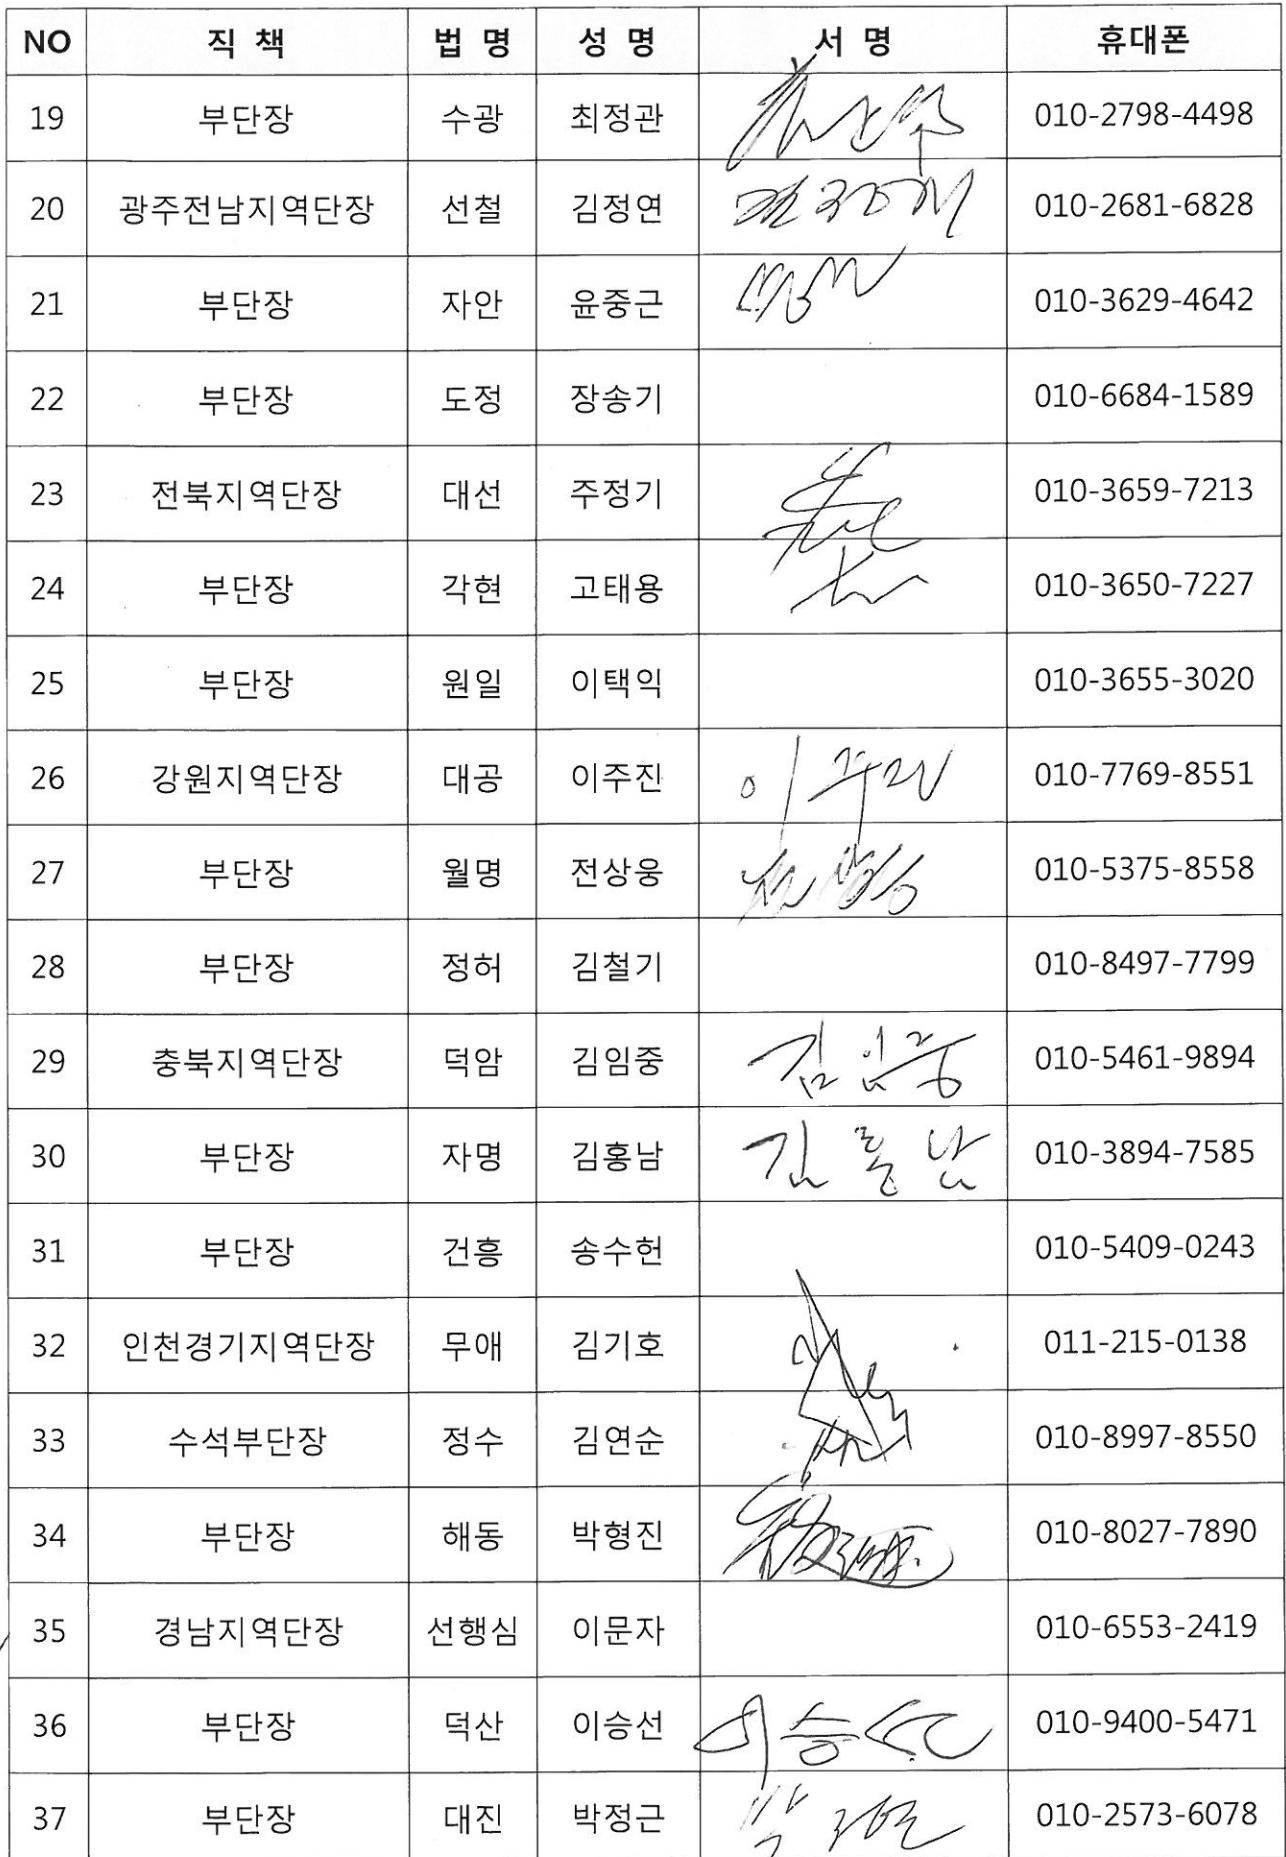 NO 직 책 법 명 성 명 서 명 휴대폰
19 부단장 수광 최정관 010-2798-4498
20 광주전남지역단장 선철 김정연 010-2681-6828
21 부단장 자안 윤중근 010-3629-4642
22 부단장 도정 장송기 010-6684-1589
23 전북지역단장 대선 주정기 010-3659-7213
24 부단장 각현 고태용 010-3650-7227
25 부단장 원일 이택익 010-3655-3020
26 강원지역단장 대공 이주진 이주진 010-7769-8551
27 부단장 월명 전상웅 010-5375-8558
28 부단장 정허 김철기 010-8497-7799
29 충북지역단장 덕암 김임중 김임중 010-5461-9894
30 부단장 자명 김홍남 김홍남 010-3894-7585
31 부단장 건흥 송수헌 010-5409-0243
32 인천경기지역단장 무애 김기호 011-215-0138
33 수석부단장 정수 김연순 010-8997-8550
34 부단장 해동 박형진 010-8027-7890
35 경남지역단장 선행심 이문자 010-6553-2419
36 부단장 덕산 이승선 이승선 010-9400-5471
37 부단장 대진 박정근 010-2573-6078